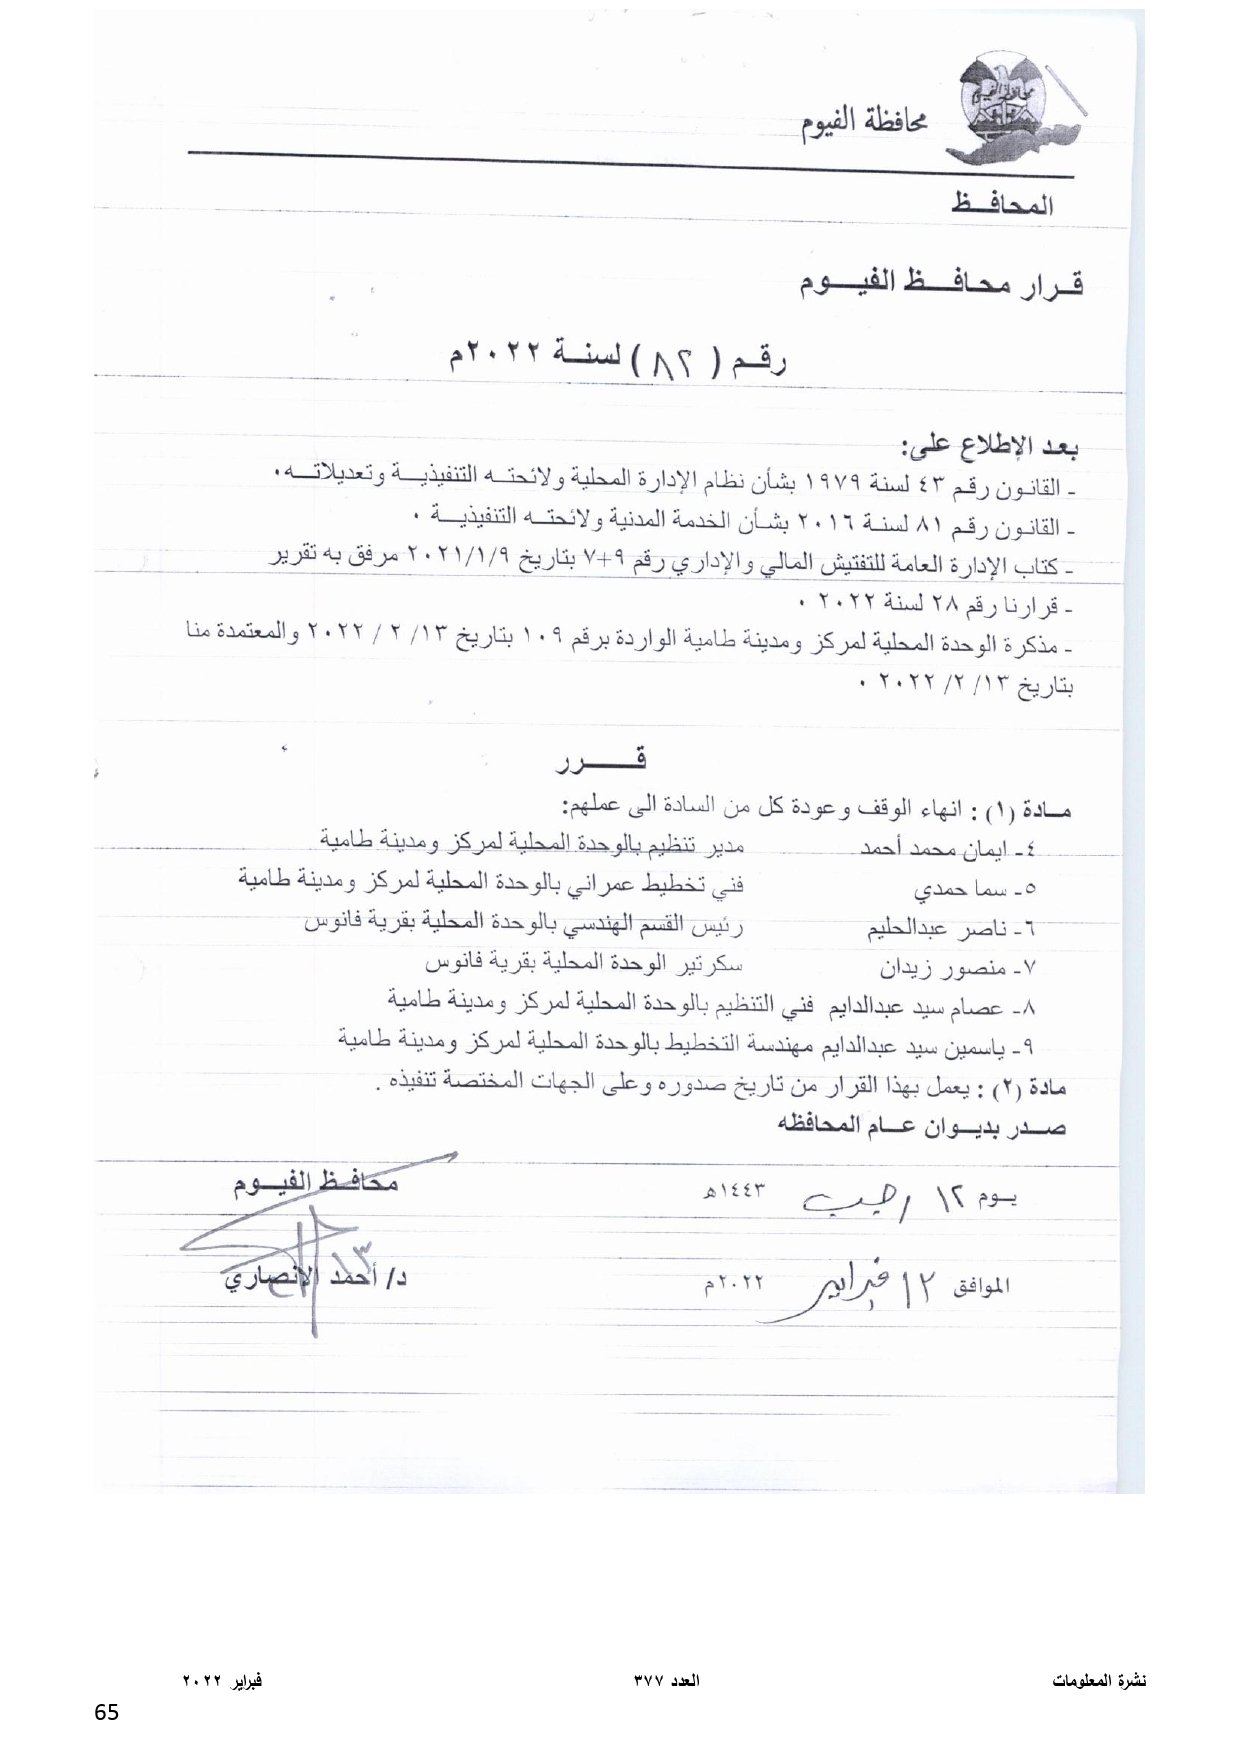 محافظة الفيوم
محافظة الفيوم
المحافـــظ
قـرار محافـــظ الفيـــوم
رقـم ( ٨٢ ) لسنـة ٢٠٢٢م
بعد الإطلاع على:
ـ القانون رقم ٤٣ لسنة ١٩٧٩ بشأن نظام الإدارة المحلية ولائحتـه التنفيذيـة وتعديلاتـه٠
ـ القانون رقم ٨١ لسنة ٢٠١٦ بشأن الخدمة المدنية ولائحتـه التنفيذيـة ٠
ـ كتاب الإدارة العامة للتفتيش المالي والإداري رقم ٩+٧ بتاريخ ٢٠٢١/١/٩ مرفق به تقرير
ـ قرارنا رقم ٢٨ لسنة ٢٠٢٢ ٠
ـ مذكرة الوحدة المحلية لمركز ومدينة طامية الواردة برقم ١٠٩ بتاريخ ١٣/ ٢ / ٢٠٢٢ والمعتمدة منا
بتاريخ ١٣/ ٢/ ٢٠٢٢ ٠
قـــــرر
مـادة (١) : انهاء الوقف وعودة كل من السادة الى عملهم:
٤ـ ايمان محمد أحمد مدير تنظيم بالوحدة المحلية لمركز ومدينة طامية
٥ـ سما حمدي فني تخطيط عمراني بالوحدة المحلية لمركز ومدينة طامية
٦ـ ناصر عبدالحليم رئيس القسم الهندسي بالوحدة المحلية بقرية فانوس
٧ـ منصور زيدان سكرتير الوحدة المحلية بقرية فانوس
٨ـ عصام سيد عبدالدايم فني التنظيم بالوحدة المحلية لمركز ومدينة طامية
٩ـ ياسمين سيد عبدالدايم مهندسة التخطيط بالوحدة المحلية لمركز ومدينة طامية
مادة (٢) : يعمل بهذا القرار من تاريخ صدوره وعلى الجهات المختصة تنفيذه .
صـدر بديـوان عـام المحافظه
يـوم ١٢ رجب ١٤٤٣هـ
محافـظ الفيـوم
الموافق ١٢ فبراير ٢٠٢٢م
د/ أحمد الإنصاري
نشرة المعلومات العدد ٣٧٧ فبراير ٢٠٢٢
65